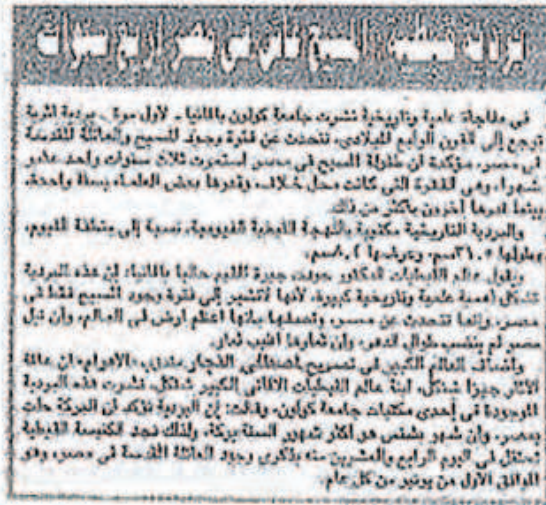 بردية قبطية: المسيح عاش في مصر أربع سنوات
في مفاجأة علمية وتاريخية نشرت جامعة كولون بألمانيا ـ لأول مرة ـ بردية أثرية
ترجع إلى القرن الرابع الميلادي، تتحدث عن فترة وجود المسيح والعائلة المقدسة
في مصر، مؤكدة أن طفولة المسيح في مصر استمرت ثلاث سنوات وأحد عشر
شهرا، وهي الفترة التي كانت محل خلاف، وقدرها بعض العلماء بسنة واحدة،
بينما قدرها آخرون بأكثر من ذلك.
والبردية التاريخية مكتوبة باللهجة القبطية الفيومية، نسبة إلى منطقة الفيوم،
وطولها ٣١.٥سم، وعرضها ٨.٤سم.
ويقول عالم القبطيات الدكتور جودت جبرة المقيم حاليا بألمانيا: إن هذه البردية
تشكل أهمية علمية وتاريخية كبيرة، لأنها لا تشير إلى فترة وجود المسيح فقط في
مصر، وإنما تتحدث عن مصر، وتصفها بأنها أعظم أرض في العالم، وأن نيل
مصر لم ينضب طوال الدهر، وأن ثمارها أطيب ثمار.
وأضاف العالم الكبير في تصريح لمصطفى النجار مندوب «الأهرام» أن عالمة
الآثار جيزا شنكل، ابنة عالم القبطيات الألماني الكبير شنكل، نشرت هذه البردية
الموجودة في إحدى مكتبات جامعة كولون، وقالت: إن البردية تؤكد أن البركة حلت
بمصر، وأن شهر بشنس هو أكثر شهور السنة بركة، ولذلك نجد الكنيسة القبطية
تحتفل في اليوم الرابع والعشرين منه بذكرى وجود العائلة المقدسة في مصر، وهو
الموافق الأول من يونيو من كل عام.